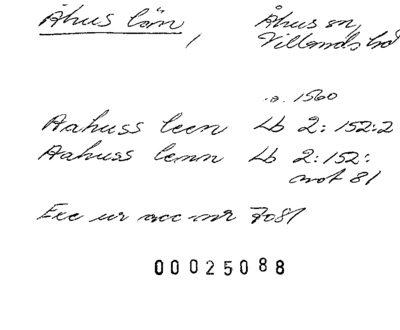 Åhus län, Åhus sn,
Villands hd
.a. 1560
Aahuss leen Lb 2:152:2
Aahuss lenn Lb 2:152:
not 81
Exc ur acc-nr 7081
00025088